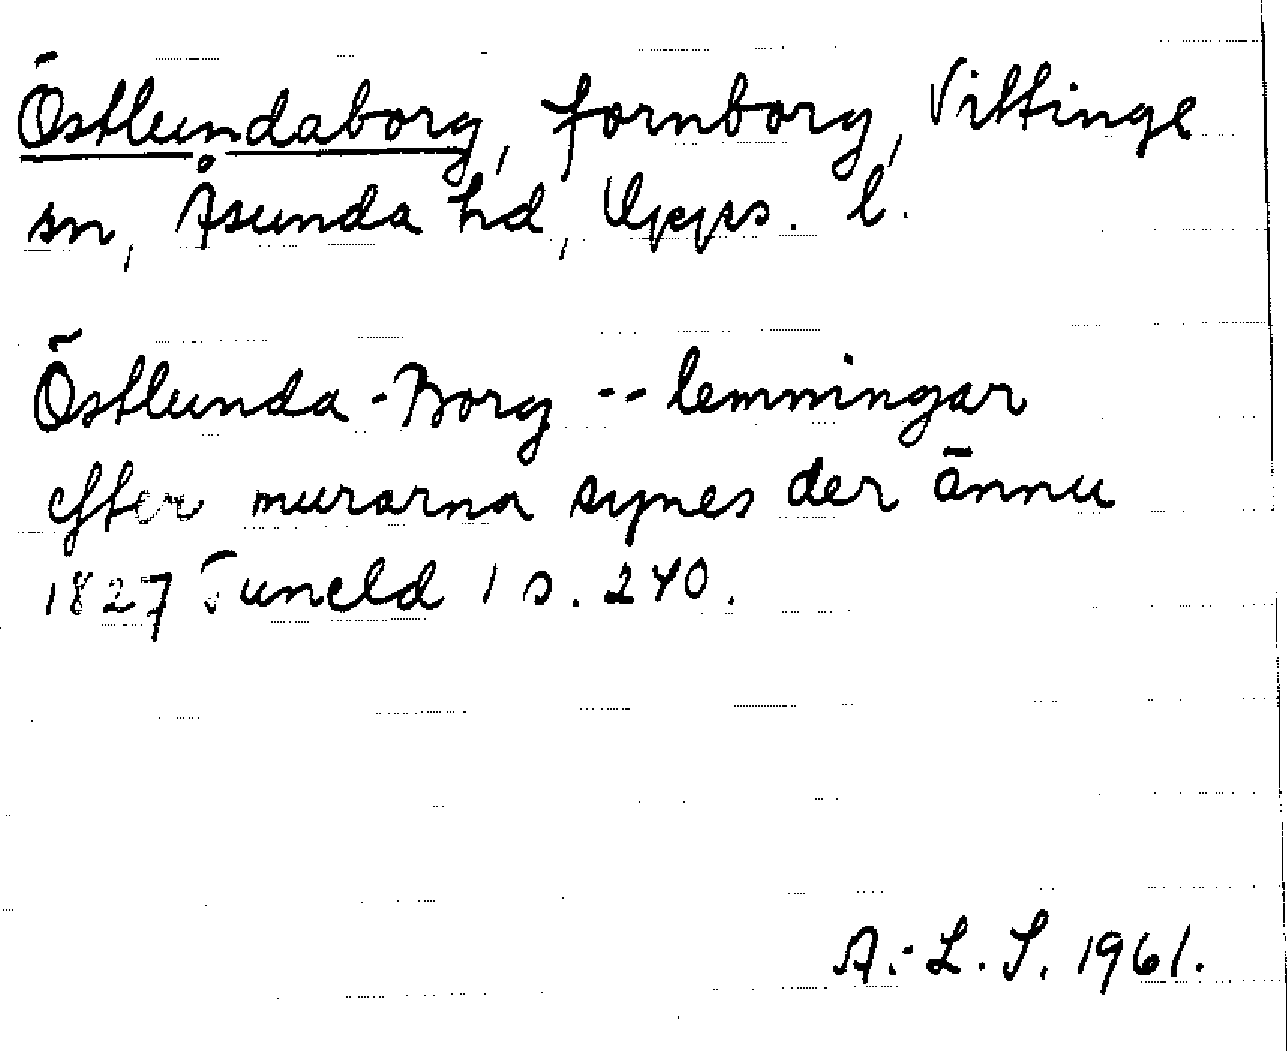 Östlundaborg, fornborg, Vittinge
sn, Åsunda hd, Upps. l.
Östlunda-Borg -- lemningar
efter murarna synes der ännu
1827 Tuneld 1 s. 240.
A.-L. S. 1961.